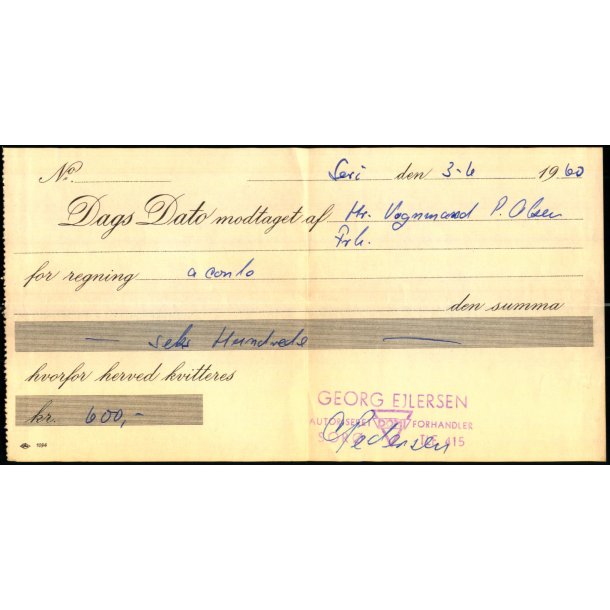 No. Sorø den 3-6 1960
Dags Dato modtaget af Hr. Vognmand P. Olsen
Frb.
for regning a conto
den summa
— seks Hundrede —
hvorfor herved kvitteres
kr. 600,-
GEORG EJLERSEN
AUTORISERET FORHANDLER
SORØ TLF. 415
Pedersen
1094